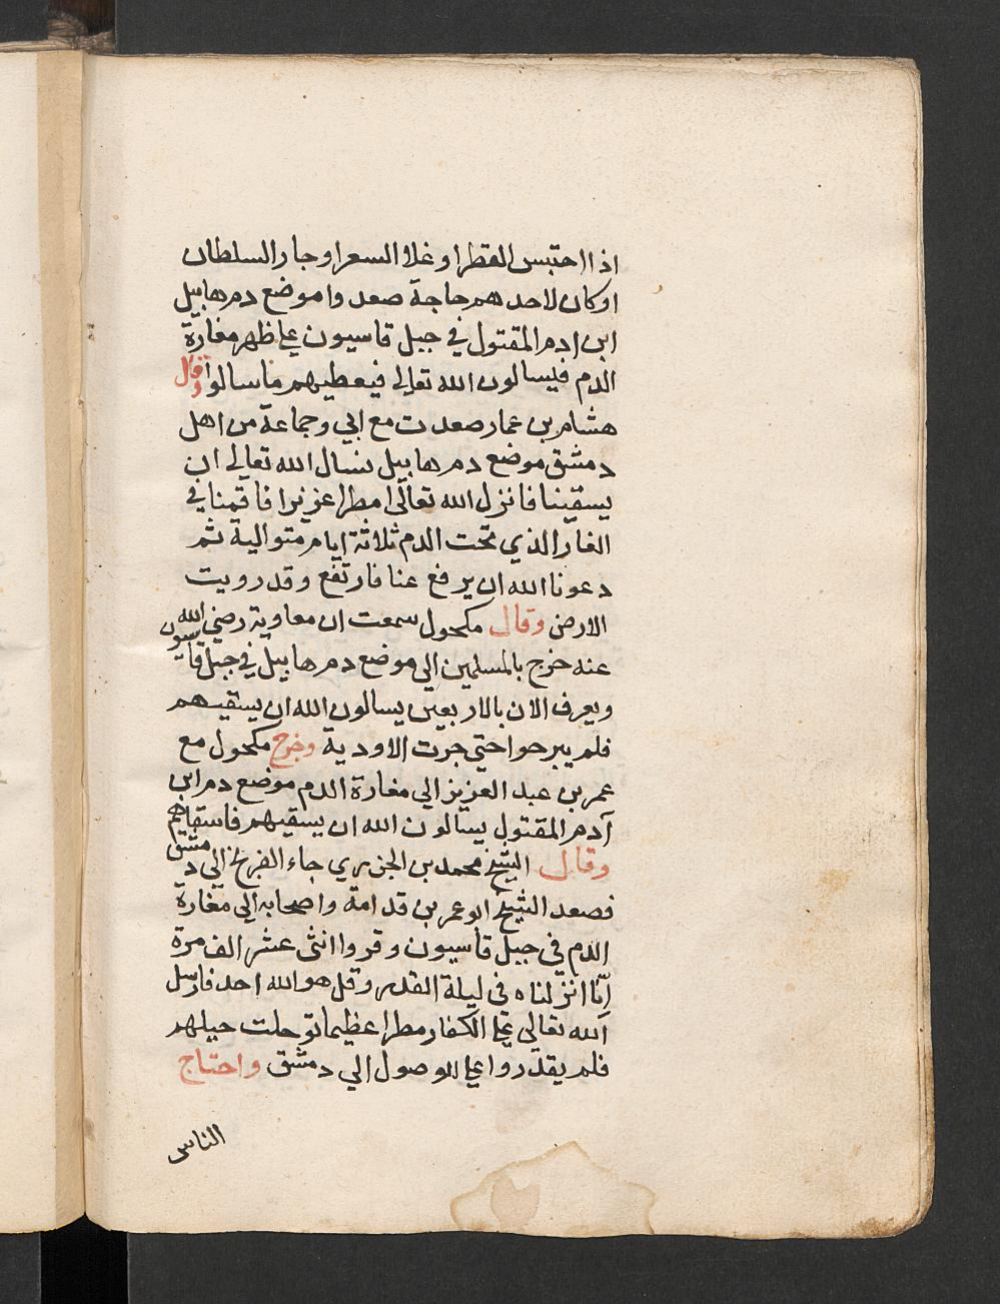 اذا احتبس القطر او غلا السعر او جار السلطان
او كان لاحدهم حاجة صعدوا موضع دم هابيل
ابن ادم المقتول في جبل قاسيون على ظهر مغارة
الدم فيسالون الله تعالى فيعطيهم ما سالوا وقال
هشام بن عمار صعدت مع ابي وجماعة من اهل
دمشق موضع دم هابيل نسال الله تعالى ان
يسقينا فانزل الله تعالى مطرا غزيرا فاقمنا في
الغار الذي تحت الدم ثلاثة ايام متوالية ثم
دعونا الله ان يرفع عنا فارتفع وقد رويت
الارض وقال مكحول سمعت ان معاوية رضي الله
عنه خرج بالمسلمين الي موضع دم هابيل في جبل قاسيون
ويعرف الان بالاربعين يسالون الله ان يسقيهم
فلم يبرحوا حتي جرت الاودية وخرج مكحول مع
عمر بن عبد العزيز الي مغارة الدم موضع دم ابن
آدم المقتول يسالون الله ان يسقيهم فاستقاهم
وقال الشيخ محمد بن الجزري جاء الفرنج الي دمشق
فصعد الشيخ ابو عمر بن قدامة واصحابه الي مغارة
الدم في جبل قاسيون وقروا اثنى عشر الف مرة
إنّا انزلناه في ليلة القدر وقل هو الله احد فارسل
الله تعالي على الكفار مطرا عظيما توحلت خيلهم
فلم يقدروا على الوصول الي دمشق واحتاج
الناس